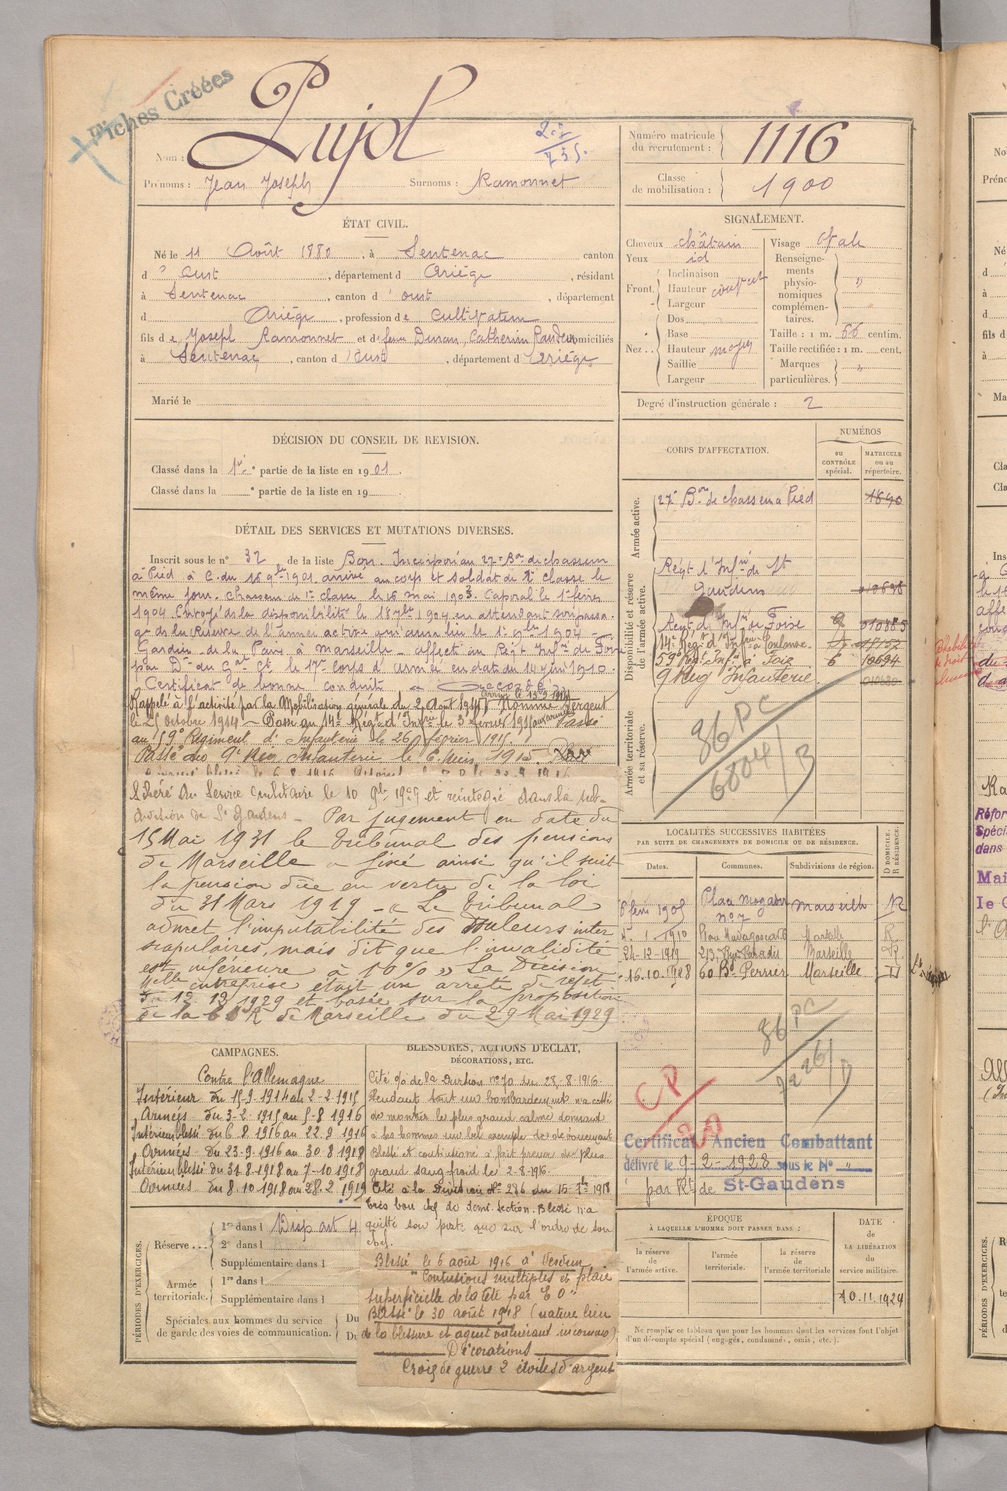 Fiches Créées
Nom : Pujol
Prénoms : Jean Joseph Surnoms : Ramonnet
Numéro matricule du recrutement : 1116
Classe de mobilisation : 1900
ÉTAT CIVIL.
Né le 11 Août 1880, à Sentenac canton
d' Oust, département d Ariège, résidant
à Sentenac, canton d' Oust, département
d Ariège, profession de Cultivateur
fils de Joseph Ramonnet et de Catherine domiciliés
à Sentenac, canton d' Oust, département d' Ariège
Marié le
SIGNALEMENT.
Cheveux châtain
Yeux id
Front. Inclinaison
Hauteur
Largeur
Nez.. Dos
Base
Hauteur moyen
Saillie
Largeur
Visage ovale
Renseignements physionomiques complémentaires. "
Taille : 1 m. 66 centim.
Taille rectifiée : 1 m. cent.
Marques particulières. "
Degré d'instruction générale : 2
DÉCISION DU CONSEIL DE REVISION.
Classé dans la 1re partie de la liste en 1901.
Classé dans la ° partie de la liste en 19
DÉTAIL DES SERVICES ET MUTATIONS DIVERSES.
Inscrit sous le n° 32 de la liste Bon. Incorporé au 27e Bon de chasseurs
à Pied à C. du 15 9bre 1901. arrivé au corps et soldat de 2e classe le
même jour. Chasseur de 1re classe le 16 mai 1903. Caporal le 1er février
1904. Envoyé dans la disponibilité le 18 7bre 1904 en attendant son passa-
ge dans la Réserve de l'armée active qui aura lieu le 1er 9bre 1904
Gardien de la Paix à Marseille affecté au Régt Infie de Foix
par Don du Gal Ct le 17e corps d'armée en date du 14 juin 1910.
Certificat de bonne conduite Accordé
Rappelé à l'activité par la Mobilisation générale du 2 Août 1914 arrivé le 15-9-1914 Nommé Sergent
le 21 octobre 1914 Passé au 14e Régt d'Infie le 3 février 1915 Passé
au 59e Régiment d'Infanterie le 26 février 1915.
Passé au 9e Rég Infanterie le 6 Mars 1915.
Libéré du Service militaire le 10 9bre 1927 et réintégré dans la sub-
division de St Gaudens Par jugement en date du
15 Mai 1931 le tribunal des pensions
de Marseille a fixé ainsi qu'il suit
la pension due en vertu de la loi
du 31 Mars 1919 « Le tribunal
admet l'imputabilité des douleurs inter
scapulaires, mais dit que l'invalidité
est inférieure à 10% » La Décision
entreprise était un arrêté de rejet
du 12.12.1929 et basée sur la proposition
de la C S R de Marseille du 29 Mai 1929
CORPS D'AFFECTATION.
NUMÉROS
AU CONTRÔLE SPÉCIAL.
MATRICULE OU AU RÉPERTOIRE.
Armée active.
27e Bon de chasseurs à Pied 1840
Disponibilité et réserve de l'armée active.
Régt d'Infie de St
Gaudens
Régt d'Infie de Foix
14e Régt d'Infie Toulouse
59e Régt Infie à Foix 6 10694
9 Rég Infanterie
Armée territoriale et sa réserve.
36 PC
6804/B
LOCALITÉS SUCCESSIVES HABITÉES
PAR SUITE DE CHANGEMENTS DE DOMICILE OU DE RÉSIDENCE.
Dates. Communes. Subdivisions de région. D DOMICILE. R RÉSIDENCE.
1905 Place n° 7 Marseille R
1.1910 Rue Madagascar Marseille R
24-12-1919 Marseille R
16.10.1928 60 Bd Perrier Marseille D
36 PC
CP
20
Certificat Ancien Combattant
délivré le 9-2-1928 sous le N° "
par Rt de St-Gaudens
CAMPAGNES.
Contre l'Allemagne
Intérieur du 15-9-1914 au 2-2-1915
Armées du 3-2-1915 au 5-8-1916
Intérieur blessé du 6-8-1916 au 22-9-1916
Armées du 23-9-1916 au 30-8-1918
Intérieur blessé du 31-8-1918 au 7-10-1918
Armées du 8-10-1918 au 28-2-1919
BLESSURES, ACTIONS D'ÉCLAT,
DÉCORATIONS, ETC.
Cité o/o de la Division n° 70 du 28-8-1916.
Pendant tout un bombardement n'a cessé
de montrer le plus grand calme donnant
à ses hommes un bel exemple
Blessé et contusionné a fait preuve du plus
grand sang-froid le 2-8-1916.
Cité à la Division N° 286 du 15 7bre 1918
très bon chef de demi-section. Blessé n'a
quitté son poste que sur l'ordre de son
chef.
Blessé le 6 août 1916 à Verdun
"Contusions multiples et plaie
superficielle de la tête par E O"
Blessé le 30 août 1918 (nature lieu
de la blessure et agent vulnérant inconnus)
Décorations
Croix de guerre 2 étoiles d'argent
PÉRIODES D'EXERCICES.
Réserve... 1re dans l Disp art 4
2e dans l
Supplémentaire dans l
Armée territoriale. 1re dans l
Supplémentaire dans l
Spéciales aux hommes du service Du
de garde des voies de communication. Du
ÉPOQUE
À LAQUELLE L'HOMME DOIT PASSER DANS :
la réserve de l'armée active.
l'armée territoriale.
la réserve de l'armée territoriale
DATE de LA LIBÉRATION du service militaire.
10.11.1927
Ne remplir ce tableau que pour les hommes dont les services font l'objet
d'un décompte spécial (engagés, condamnés, omis, etc.).